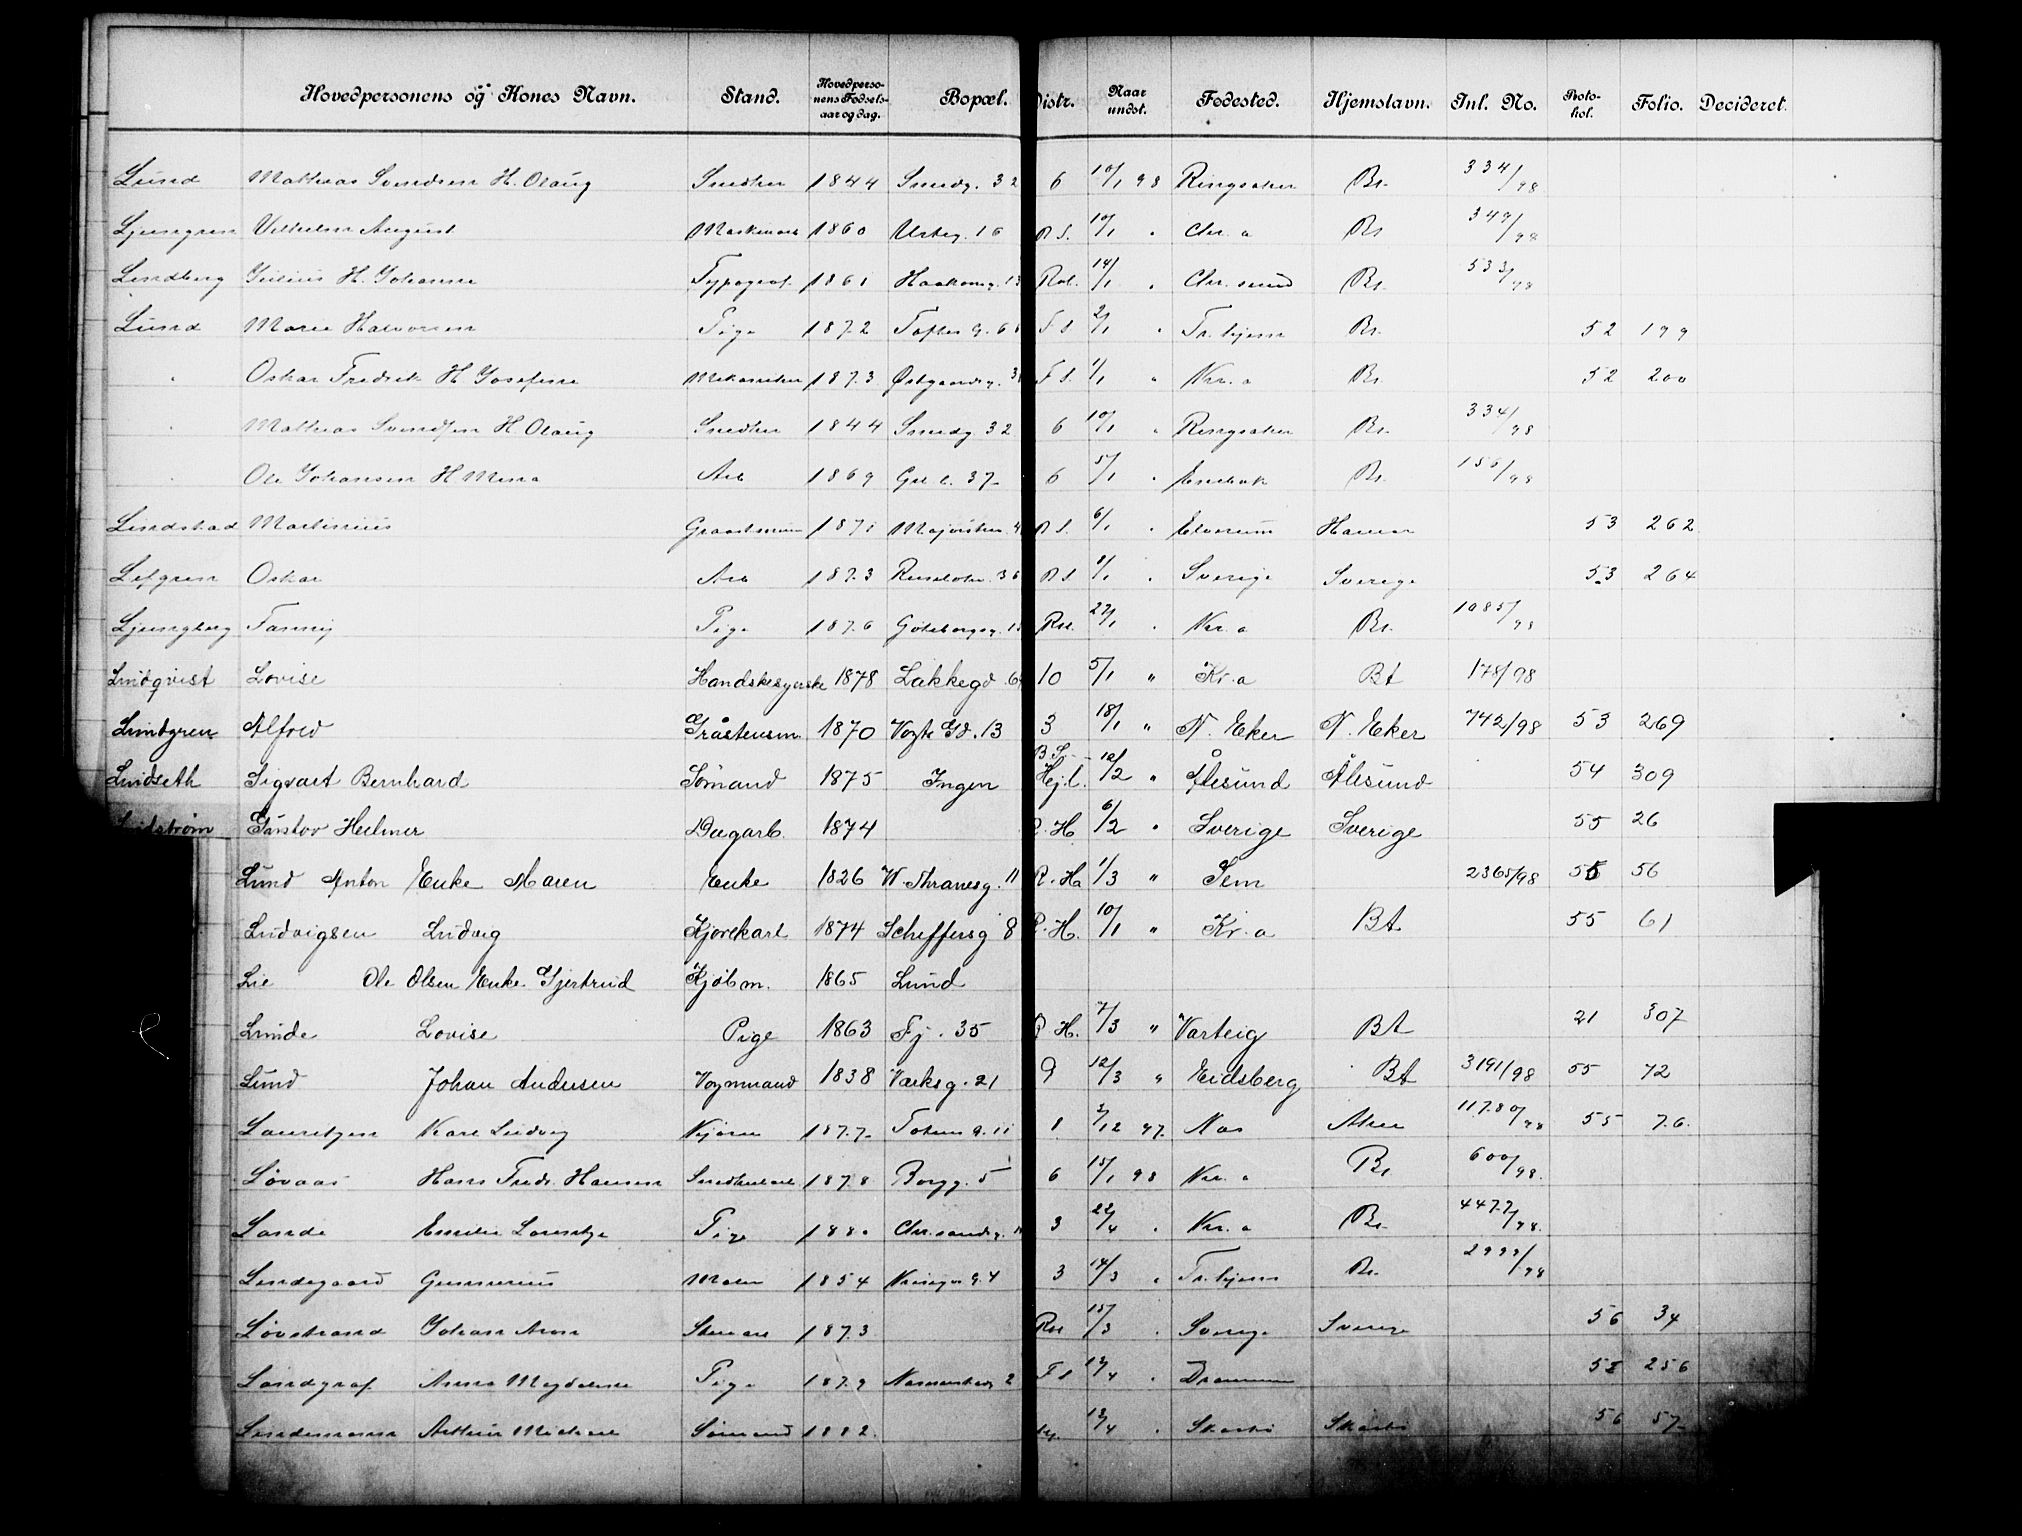 Hovedpersonens og Kones Navn. Stand. Hovedperso-nens Fødsels-aar og dag. Bopæl. Distr. Naar undst. Fødested. Hjemstavn. Inl. No. Proto-kol. Folio. Decideret.
Lund Mathias Svendsen H. Olaug Snedker 1844 Smedg. 32 6 10/1 98 Ringsaker Bt. 334/98
Ljungren Vilhelm August 1860 Urteg. 16 10/1 " Chr.a Bt 349/98
Lindberg Julius H. Johanne Typograf. 1861 Haakonsg. 13 14/1 " Chr.sund Bt. 533/98
Lund Marie Halvorsen Pige 1872 Toftes G. 6 F S 2/1 " Tr.hjem Bt. 52 199
" Oskar Fredrik H Josefine Mekaniker 1873 Østgaardsg. F S. 1/1 " Kr.a Bt 52 200
" Mathias Svendsen H Olaug Snedker 1844 Smedg. 32 6 10/1 " Ringsaker Bt. 334/98
" Ole Johansen H Mina Arb 1869 Grl. 37 6 5/1 " Enebak Bt. 156/98
Lindstad Martinius 1871 6/1 " Elverum Hamar 53 262
Løfgren Oskar Arb 1873 8/1 " Sverige Sverige 53 264
Ljungberg Fanny Pige 1876 Göteborgsg. 27/1 " Kr.a Bt. 1085/98
Lindqvist Lovise Handskesyerske 1878 Lakkegd. 10 5/1 " Kr.a Bt 178/98
Lindgren Alfred Gråstensm. 1870 Vogts Gd. 13 3 18/1 " N. Eker N. Eker 742/98 53 269
Lindseth Sigvart Bernhard Sømand 1875 Ingen 12/2 " Ålesund Ålesund 54 309
Lindstrøm Gustav Helmer Dagarb. 1874 R. H 6/2 " Sverige Sverige 55 26
Lund Anton Enke Maren Enke 1826 W. Thranesg. 11 R. H 1/3 " Sem 2365/98 55 56
Ludvigsen Ludvig Kjørekarl 1874 Scheffersg 8 R. H. 10/1 " Kr.a Bt 55 61
Lie Ole Olsen Enke Gjertrud Kjøbm. 1865 Lund
Lunde Lovise Pige 1863 Fj. 35 R H. 7/3 " Varteig Bt 21 307
Lund Johan Andersen Vognmand 1838 Værksg. 21 9 12/3 " Eidsberg Bt 3191/98 55 72
Lauritzen Karl Ludvig 1877 11 1 2/12 97 Nes Aker 11780/98 55 76
Løvaas Hans Fredr. Hansen 1878 Borgg. 5 6 15/1 98 Kr.a Bt 600/98
Lande Emilie Lorentze Pige 1880 Chr.sandsg. 3 22/4 " Kr.a Bt. 4477/98
Lindegaard Gunnerius Maler 1854 4 3 14/3 " Tr.hjem Bt. 2999/98
Løvstrand Johan Aron 1873 15/3 " Sverige Sverige 56 34
Landgraf Anna Magdalene Pige 1879 2 F S 12/4 " Drammen 256
Lindemann Arthur Mickael Sømand 1882 12/4 " 56 57